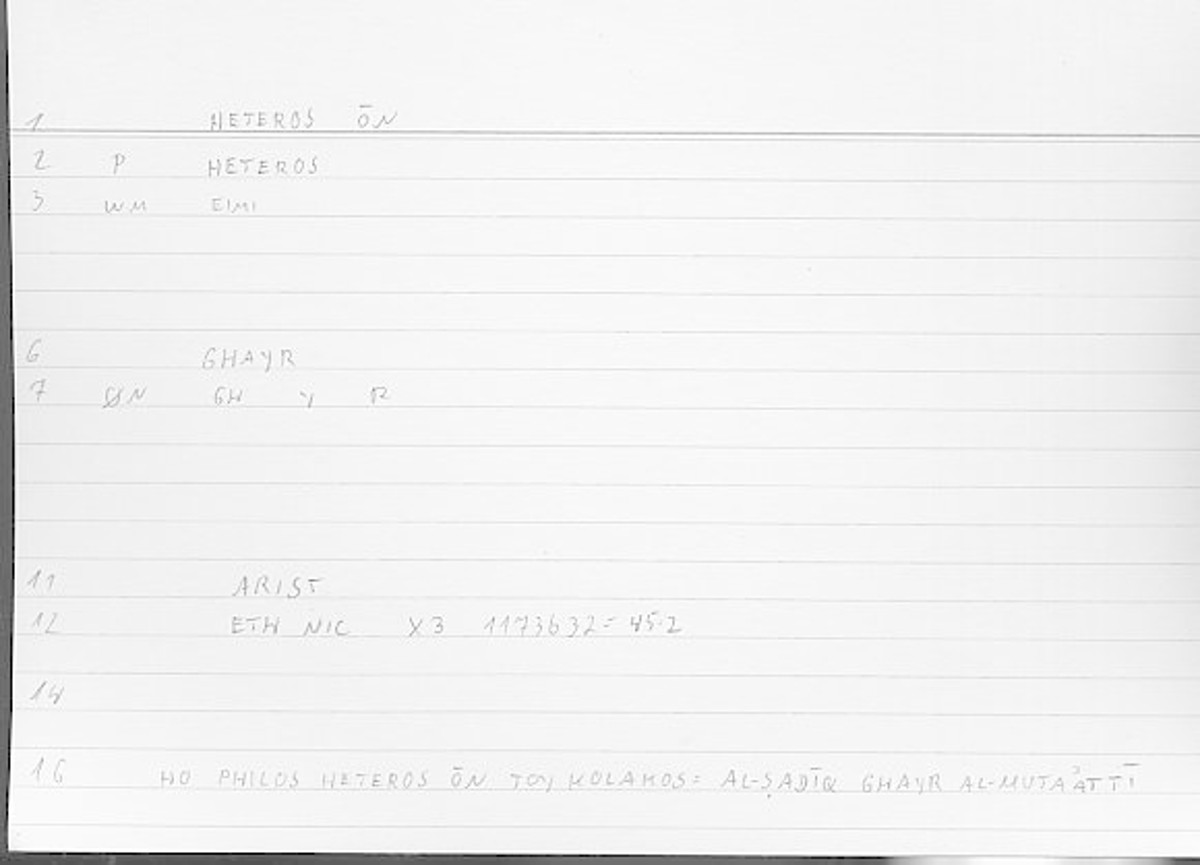 1 HETEROS ŌN
2 P HETEROS
3 WM EIMI
6 GHAYR
7 ØN GH Y R
11 ARIST
12 ETH NIC X3 1173b32= 45.2
14
16 HO PHILOS HETEROS ŌN TOY KOLAKOS= AL-ṢADĪQ GHAYR AL-MUTAʾATTĪ